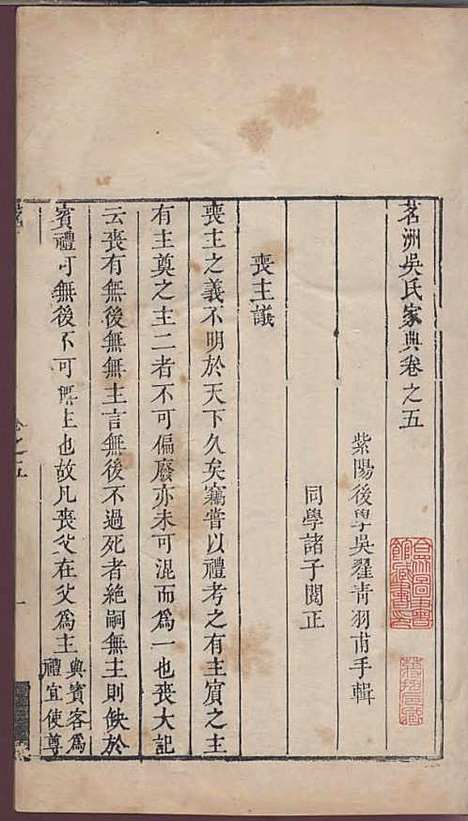 茗洲吳氏家典卷之五
紫陽後學吳翟青羽甫手輯
同學諸子閱正
喪主議
喪主之義不明於天下久矣竊嘗以禮考之有主賔之主
有主奠之主二者不可偏廢亦未可混而爲一也喪大記
云喪有無後無無主言無後不過死者絶嗣無主則缺於
賓禮可無後不可無主也故凡喪父在父爲主
與賓客爲
禮宜使尊
卷之五
一